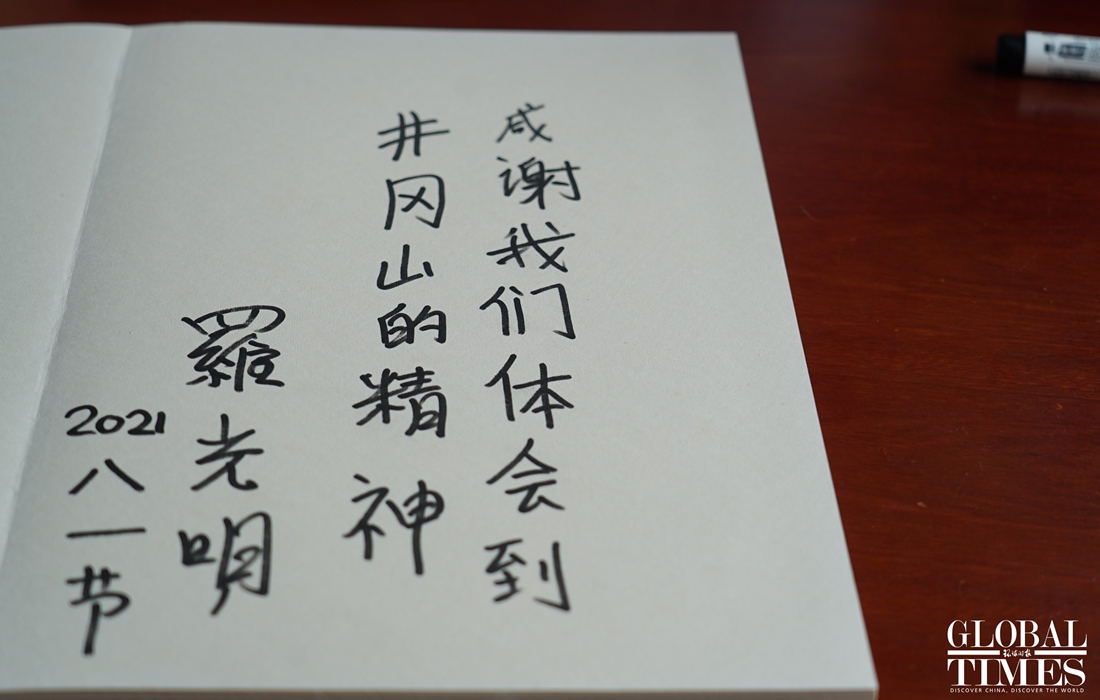 感谢我们体会到
井冈山的精神
羅光明
2021
八一节
GLOBAL
环球时报
TIMES
DISCOVER CHINA, DISCOVER THE WORLD